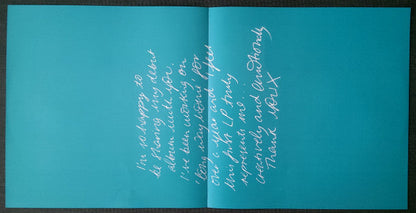 I'm so happy to
be sharing my debut
album with you.
I've been working on
'long way home' for
over a year and I feel
this first LP truly
represents me...
creatively and emotionally
Thank you X